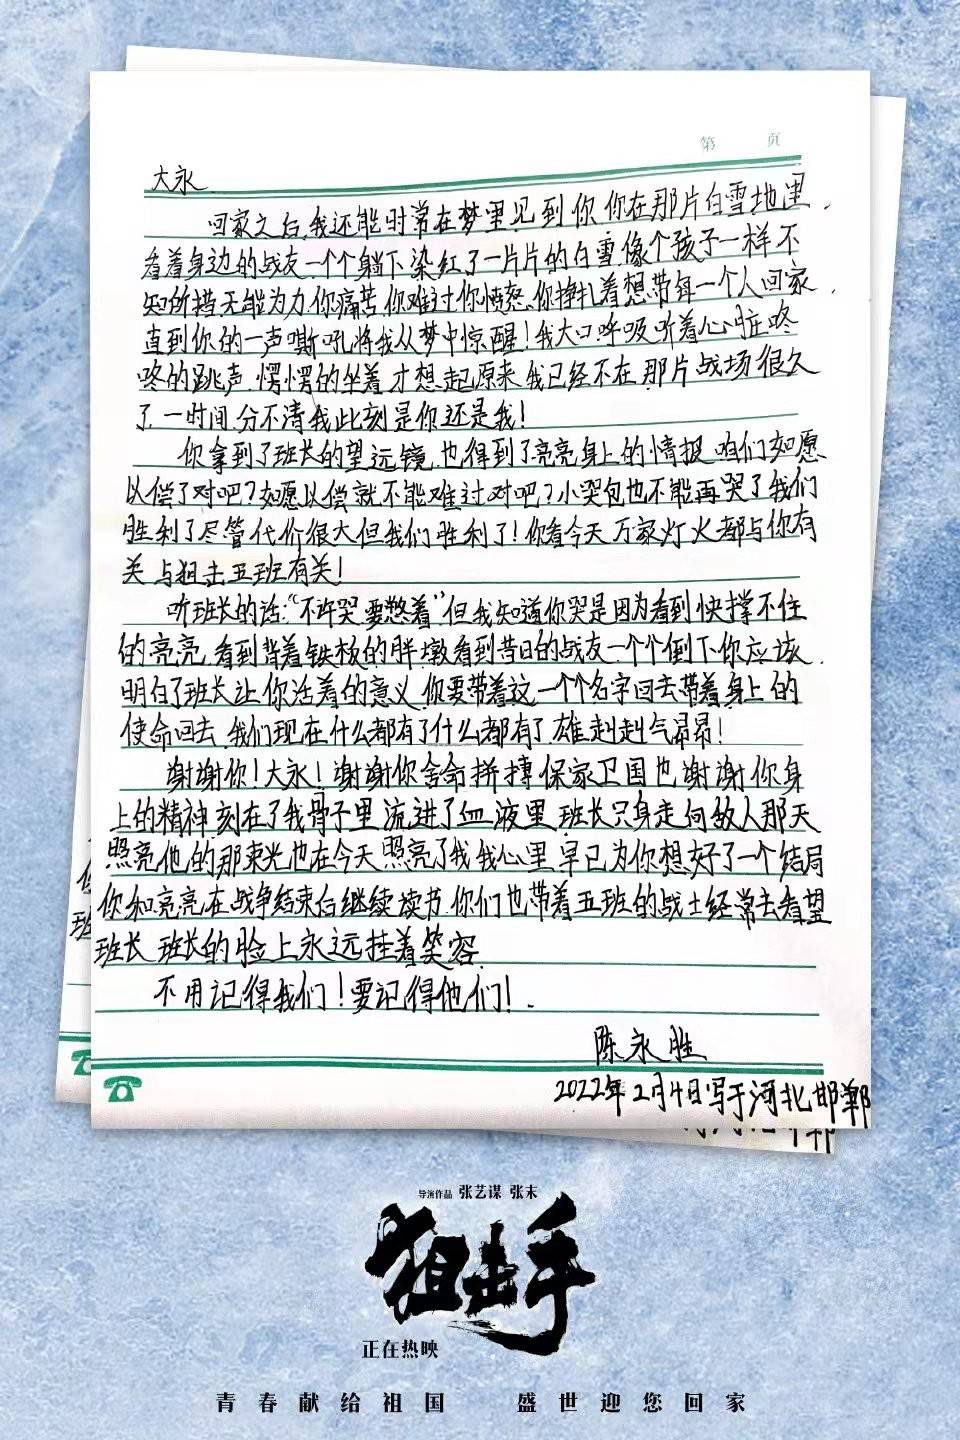 第 页
大永
回家之后,我还能时常在梦里见到你 你在那片白雪地里.
看着身边的战友一个个躺下染红了一片片的白雪像个孩子一样不
知所措无能为力你痛苦你难过你愤怒你挣扎着想带每一个人回家.
直到你的一声嘶吼将我从梦中惊醒!我大口呼吸听着心脏咚
咚的跳声.愣愣的坐着才想起原来我已经不在那片战场很久
了.一时间分不清我此刻是你还是我!
你拿到了班长的望远镜.也得到了亮亮身上的情报 咱们如愿
以偿了对吧?如愿以偿就不能难过对吧?小哭包也不能再哭了我们
胜利了尽管代价很大但我们胜利了!你看今天万家灯火都与你有
关 与狙击五班有关!
听班长的话:“不许哭要憋着”但我知道你哭是因为看到快撑不住
的亮亮 看到背着铁板的胖墩看到昔日的战友一个个倒下你应该.
明白了班长让你活着的意义.你要带着这一个个名字回去带着身上的
使命回去.我们现在什么都有了什么都有了.雄赳赳气昂昂!
谢谢你!大永!谢谢你舍命拼搏保家卫国也谢谢你身
上的精神刻在了我骨子里流进了血液里 班长只身走向敌人那天
照亮他的那束光也在今天照亮了我 我心里早已为你想好了一个结局
你和亮亮在战争结束后继续读书.你们也带着五班的战士经常去看望
班长 班长的脸上永远挂着笑容.
不用记得我们!要记得他们!.
陈永胜
2022年2月4日写于河北邯郸
导演作品 张艺谋 张末
狙击手
正在热映
青春献给祖国 盛世迎您回家